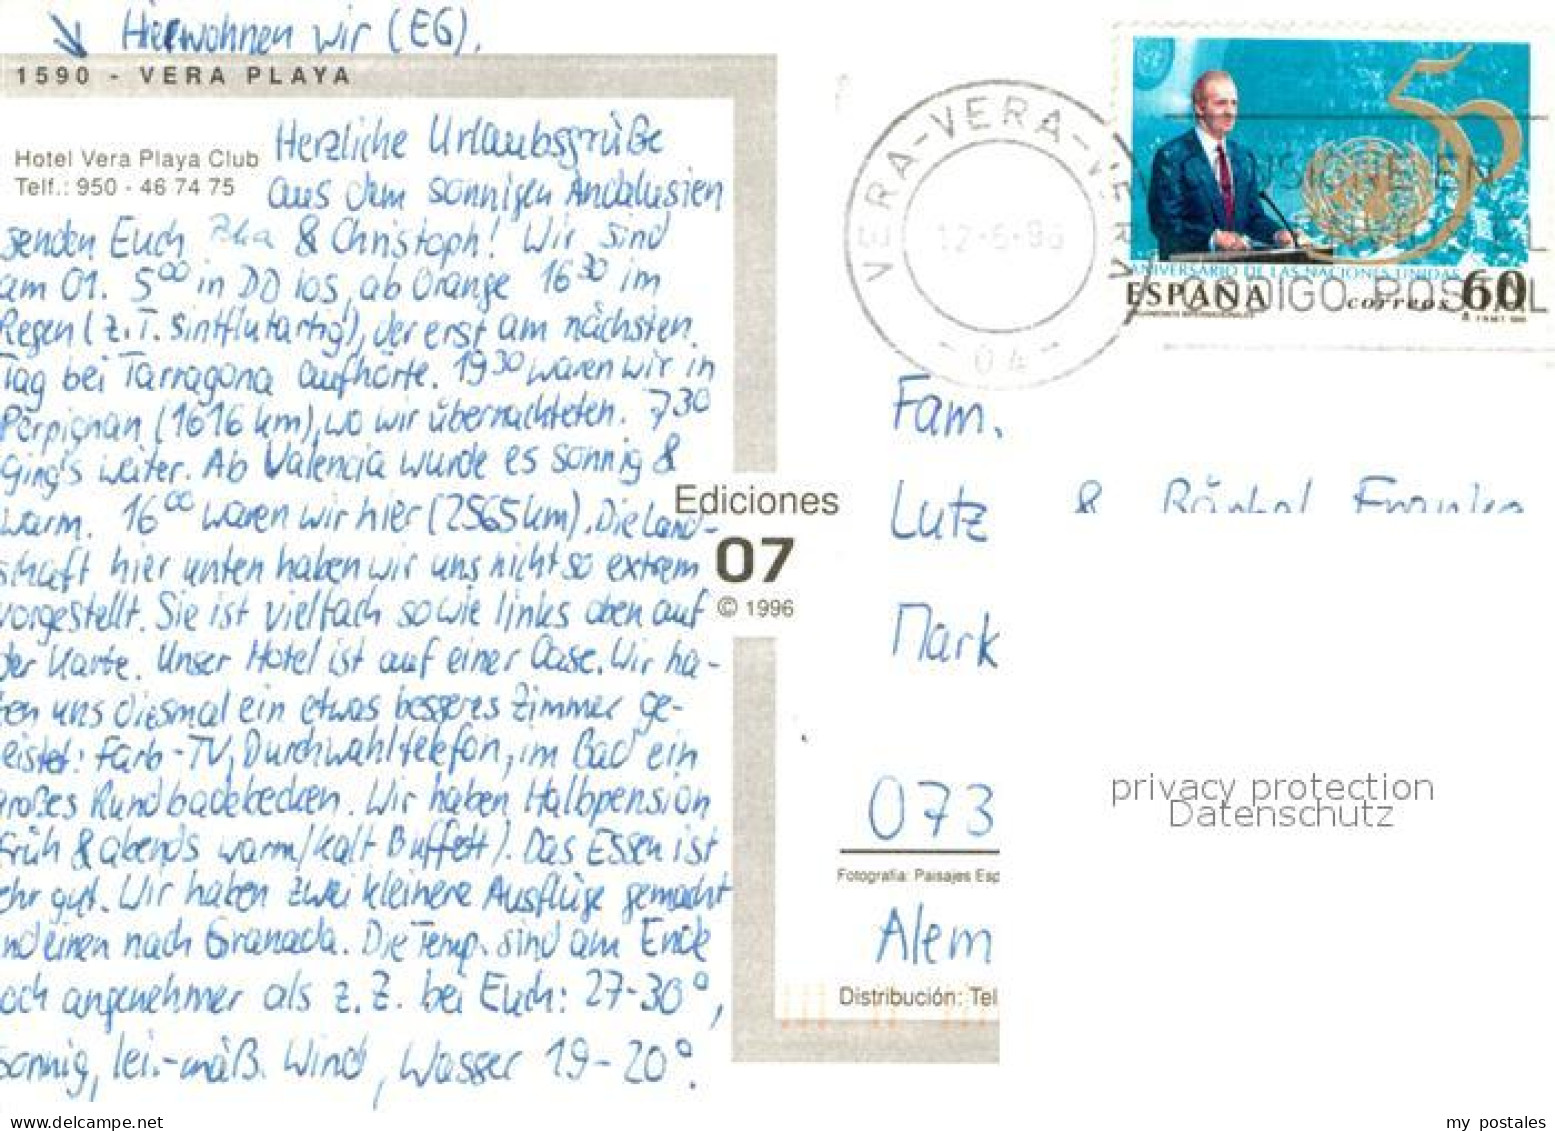 Hier wohnen wir (EG).
1590 - VERA PLAYA
Hotel Vera Playa Club
Telf.: 950 - 46 74 75
Herzliche Urlaubsgrüße
aus dem sonnigen Andalusien
senden Euch & Christoph! Wir sind
am 01. 5⁰⁰ in DD los, ab Orange 16³⁰ im
Regen (z.T. sintflutartig), der erst am nächsten
Tag bei Tarragona aufhörte. 19³⁰ waren wir in
Perpignan (1616 km), wo wir übernachteten. 7³⁰
ging's weiter. Ab Valencia wurde es sonnig &
warm. 16⁰⁰ waren wir hier (2565 km). Die Land-
schaft hier unten haben wir uns nicht so extrem
vorgestellt. Sie ist vielfach so wie links oben auf
der Karte. Unser Hotel ist auf einer Oase. Wir ha-
ben uns diesmal ein etwas besseres Zimmer ge-
leistet: Farb-TV, Durchwahltelefon, im Bad ein
großes Rundbadebecken. Wir haben Halbpension
früh & abends warm/kalt Buffett). Das Essen ist
ehr gut. Wir haben zwei kleinere Ausflüge gemacht
nd einen nach Granada. Die Temp. sind am Ende
och angenehmer als z.Z. bei Euch: 27-30°,
sonnig, lei.-mäß. Wind, Wasser 19-20°.
Ediciones
07
© 1996
VERA-VERA-VERA
12-6-96
- 04 -
50
ANIVERSARIO DE LAS NACIONES UNIDAS
ESPAÑA correos 60
CODIGO POSTAL
Fam.
Lutz & Bärbel Franke
Mark
073
Fotografia: Paisajes Esp
Alem
Distribución: Tel
privacy protection
Datenschutz
my postales